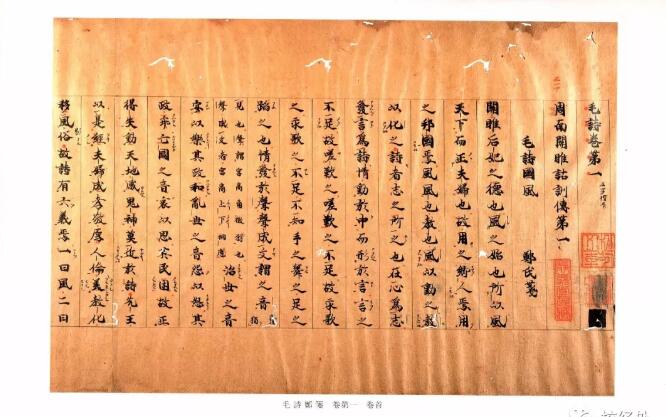 毛詩卷第一
周南關雎詁訓傳第一
毛詩國風 鄭氏箋
關雎后妃之德也風之始也所以風
天下而正夫婦也故用之鄉人焉用
之邦國焉風風也教也風以動之教
以化之詩者志之所之也在心爲志
發言爲詩情動於中而形於言言之
不足故嗟歎之嗟歎之不足故永歌
之永歌之不足不知手之舞之足之
蹈之也情發於聲聲成文謂之音
治世之音
安以樂其政和亂世之音怨以怒其
政乖亡國之音哀以思其民困故正
得失動天地感鬼神莫近於詩先王
以是經夫婦成孝敬厚人倫美教化
移風俗故詩有六義焉一曰風二曰
毛詩鄭箋 卷第一 卷首